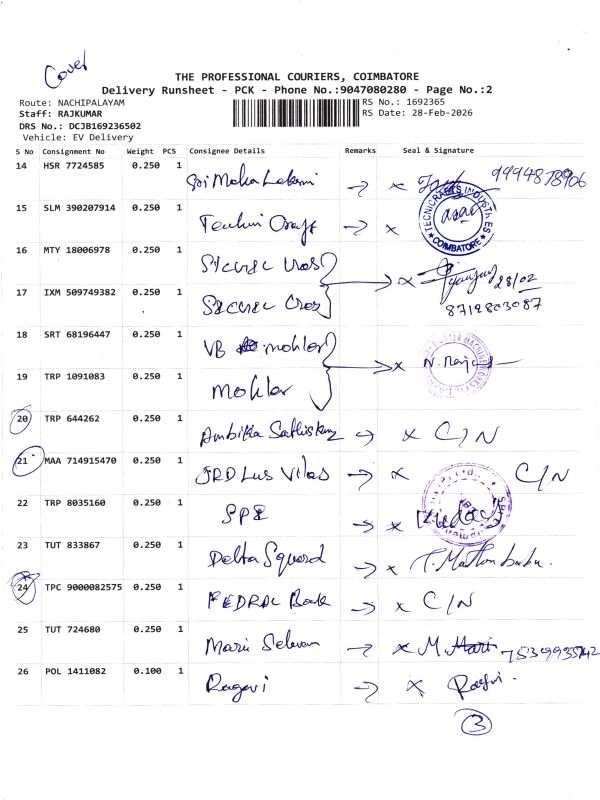 Cover
THE PROFESSIONAL COURIERS, COIMBATORE
Delivery Runsheet - PCK - Phone No.:9047080280 - Page No.:2
Route: NACHIPALAYAM RS No.: 1692365
Staff: RAJKUMAR RS Date: 28-Feb-2026
DRS No.: DCJB169236502
Vehicle: EV Delivery
S No Consignment No Weight PCS Consignee Details Remarks Seal & Signature
14 HSR 7724585 0.250 1 Sri Maha Lakxmi → x 9994878906
15 SLM 390207914 0.250 1 → x TECNICRAFTS INDUSTRIES COIMBATORE
16 MTY 18006978 0.250 1 → x 28/02
17 IXM 509749382 0.250 1 8712803087
18 SRT 68196447 0.250 1 VB mohlor → x N. Raj
19 TRP 1091083 0.250 1 Mohlor
20 TRP 644262 0.250 1 Ambika → x C/N
21 MAA 714915470 0.250 1 JRD Lus Vilas → x C/N
22 TRP 8035160 0.250 1 → x
23 TUT 833867 0.250 1 Delta Squard → x T. Mathan babu.
24 TPC 9000082575 0.250 1 FEDRAL Bank → x C/N
25 TUT 724680 0.250 1 Mari Selvan → x M. Hari 7539935742
26 POL 1411082 0.100 1 Ragavi → x Ragvi.
3